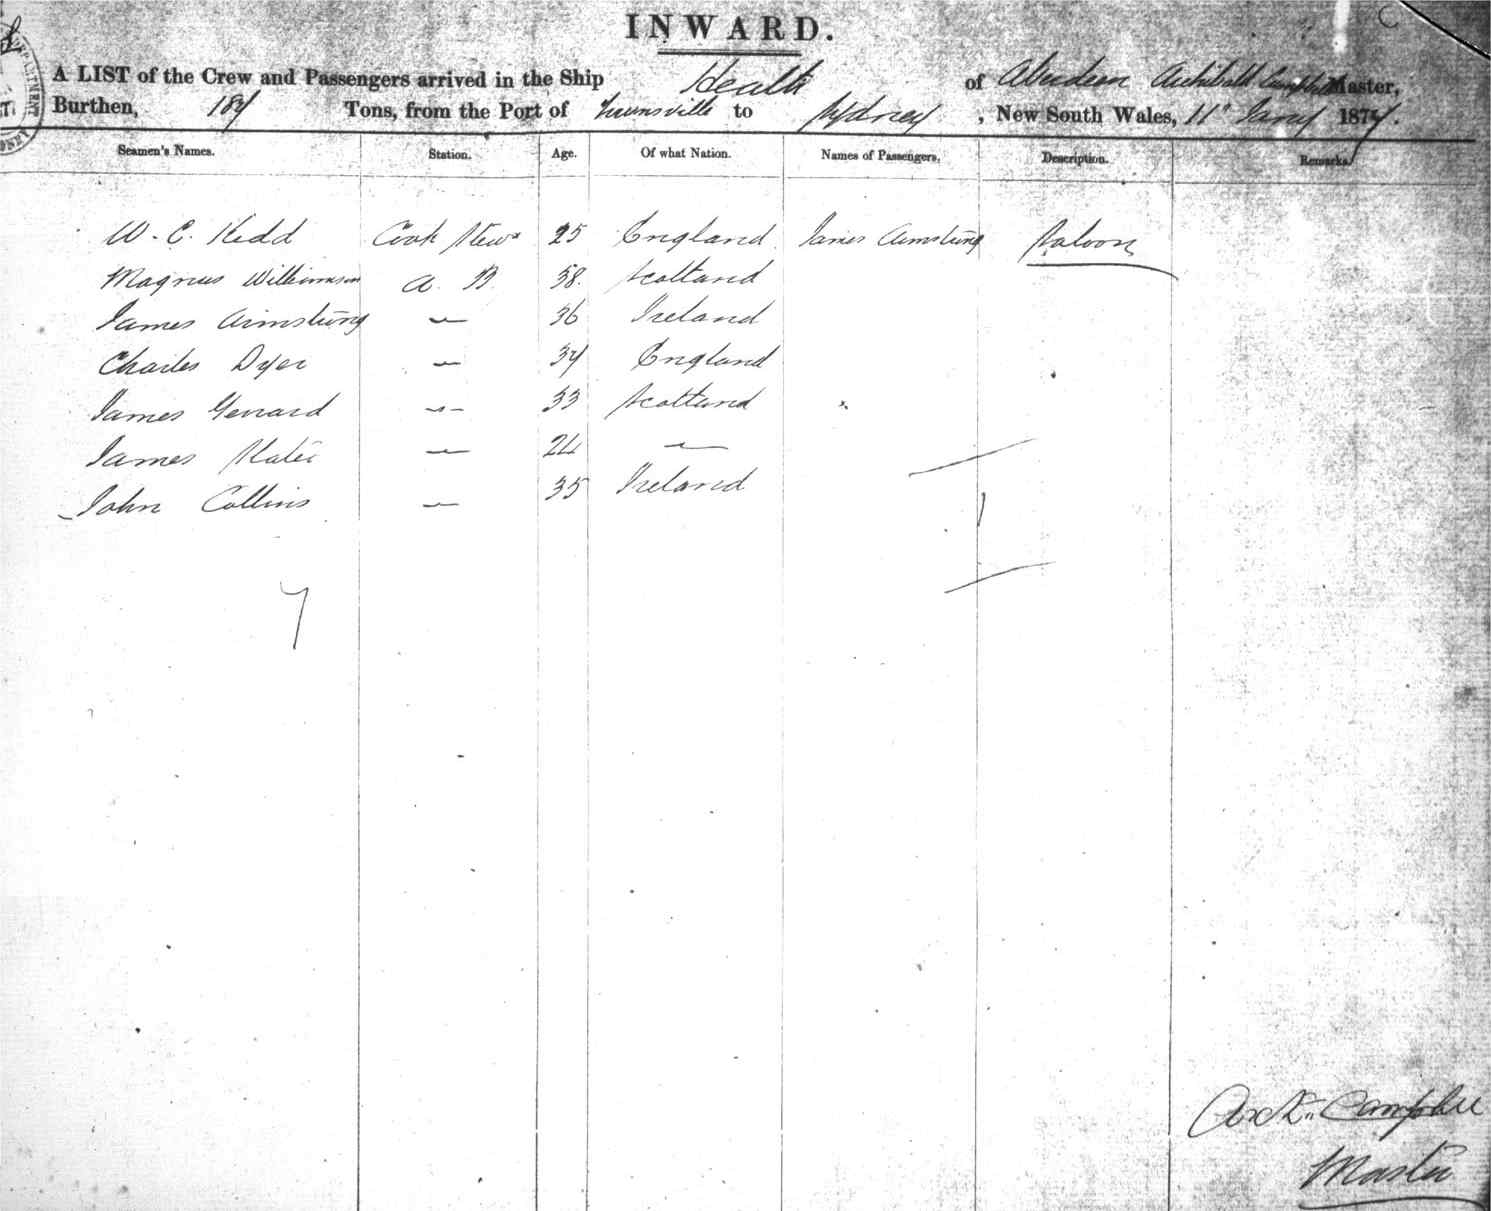 INWARD.
A LIST of the Crew and Passengers arrived in the Ship Health of Aberdeen Archibald Campbell Master,
Burthen, 184 Tons, from the Port of Townsville to Sydney, New South Wales, 11" Jany 1877.
Seamen's Names. Station. Age. Of what Nation. Names of Passengers. Description. Remarks.
W. C. Kidd Cook Stewd 25 England James Armstrong Saloon
Magnus Williamson A. B 38. Scotland
James Armstrong — 36 Ireland
Charles Dyer — 34 England
James Gerrard — 33 Scotland
James Slater — 24 —
John Collins — 35 Ireland
1
7
Archd. Campbell
Master